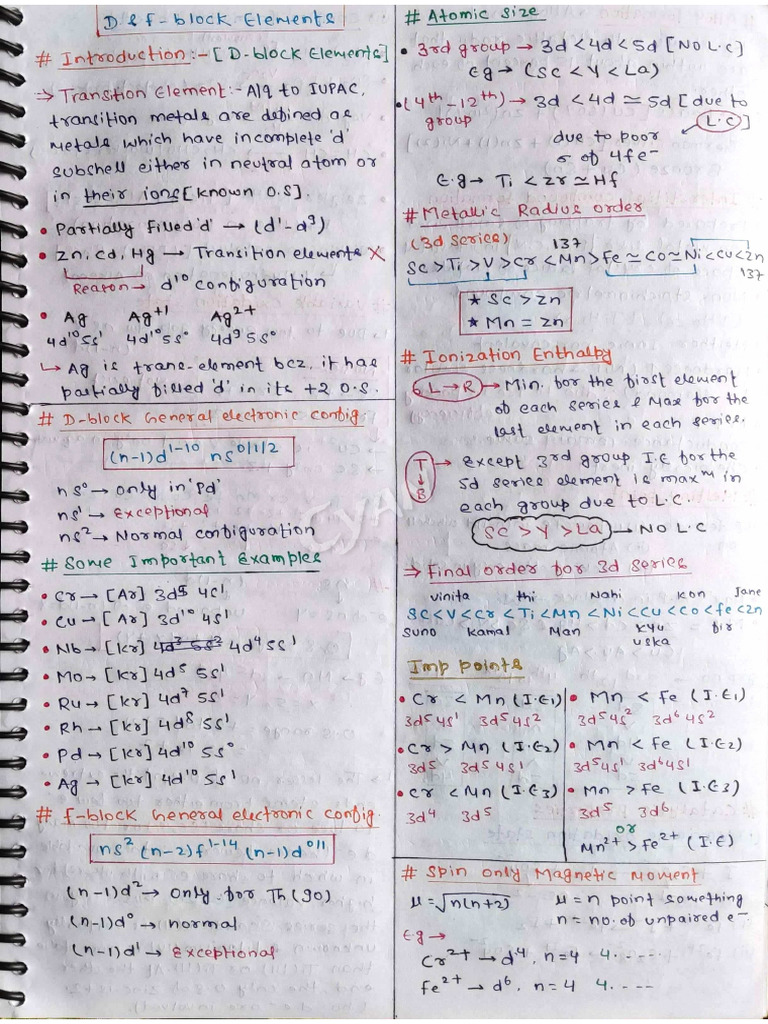 D & f-block Elements
# Introduction :- [D-block Elements]
⇒ Transition Element :- A/q to IUPAC,
transition metals are defined as
metals which have incomplete 'd'
subshell either in neutral atom or
in their ions [known O.S].
• Partially filled 'd' → (d¹-d⁹)
• Zn, Cd, Hg → Transition elements ✗
Reason → d¹⁰ configuration
• Ag Ag⁺¹ Ag²⁺
4d¹⁰5s¹ 4d¹⁰5s⁰ 4d⁹5s⁰
↳ Ag is trans-element bcz, it has
partially filled 'd' in its +2 O.S.
# D-block General electronic config
(n-1)d¹⁻¹⁰ ns⁰/¹/²
ns⁰ → only in 'Pd'
ns¹ → Exceptional
ns² → Normal configuration
# Some Important Examples
• Cr → [Ar] 3d⁵ 4s¹
• Cu → [Ar] 3d¹⁰ 4s¹
• Nb → [Kr] 4d³ 5s² 4d⁴ 5s¹
• Mo → [Kr] 4d⁵ 5s¹
• Ru → [Kr] 4d⁷ 5s¹
• Rh → [Kr] 4d⁸ 5s¹
• Pd → [Kr] 4d¹⁰ 5s⁰
• Ag → [Kr] 4d¹⁰ 5s¹
# f-block General electronic config.
ns² (n-2)f¹⁻¹⁴ (n-1)d⁰/¹
(n-1)d² → only for Th (90)
(n-1)d⁰ → normal
(n-1)d¹ → Exceptional
# Atomic size
• 3rd group → 3d < 4d < 5d [NO L.C]
Eg → (Sc < Y < La)
• (4th - 12th) → 3d < 4d ≃ 5d [due to
group L.C]
due to poor
σ of 4f e⁻
E.g → Ti < Zr ≃ Hf
# Metallic Radius order
(3d series) 137
Sc > Ti > V > Cr < Mn > Fe ≃ Co ≃ Ni < Cu < Zn
137
★ Sc > Zn
★ Mn = Zn
# Ionization Enthalpy
L → R → Min. for the first element
of each series & Max for the
last element in each series.
T → except 3rd group I.E for the
↓ 5d series element is maxᵐ in
B each group due to L.C.
Sc > Y > La → NO L.C
⇒ Final order for 3d series
vinita thi Nahi Kon Jane
Sc < V < Cr < Ti < Mn < Ni < Cu < Co < Fe < Zn
Suno Kamal Man Kyu fir
uska
Imp points
• Cr < Mn (I.E₁)
3d⁵4s¹ 3d⁵4s²
• Cr > Mn (I.E₂)
3d⁵ 3d⁵4s¹
• Cr < Mn (I.E₃)
3d⁴ 3d⁵
• Mn < Fe (I.E₁)
3d⁵4s² 3d⁶4s²
• Mn < Fe (I.E₂)
3d⁵4s¹ 3d⁶4s¹
• Mn > Fe (I.E₃)
3d⁵ 3d⁶
or
Mn²⁺ > Fe²⁺ (I.E)
# Spin only Magnetic Moment
μ = √n(n+2) μ = n point something
n = no. of unpaired e⁻
E.g →
Cr²⁺ → d⁴, n=4 4.-----
Fe²⁺ → d⁶, n=4 4.----